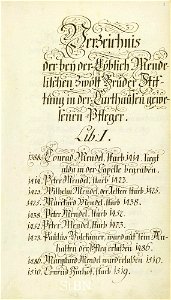 Verzeichnis
der bey der Löblich Mende-
lischen Zwölf Brüder Stif-
tung in der Carthausen gewe-
senen Pfleger.
Lib. I.
1388. Conrad Mendel, starb 1414. liegt
alda in der Capelle begraben.
1414. Peter Mendel, starb 1423.
1423. Wilhelm Mendel, der Jüster starb 1425.
1425. Marckart Mendel, starb 1438.
1438. Peter Mendel, starb 1452.
1452. Peter Mendel, starb 1473.
1473. Paulus Volckamer, ward mit sein An-
halten der Pfleg erlassen 1486.
1486. Marquard Mendel ward erlassen 1510.
1510. Conrad starb 1519.
StBN